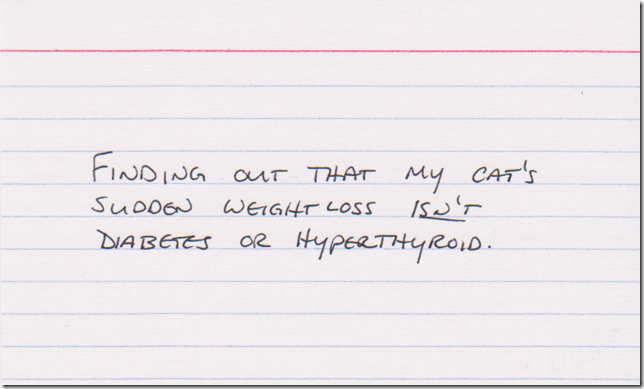 FINDING OUT THAT MY CAT'S
SUDDEN WEIGHT LOSS ISN'T
DIABETES OR HYPERTHYROID.